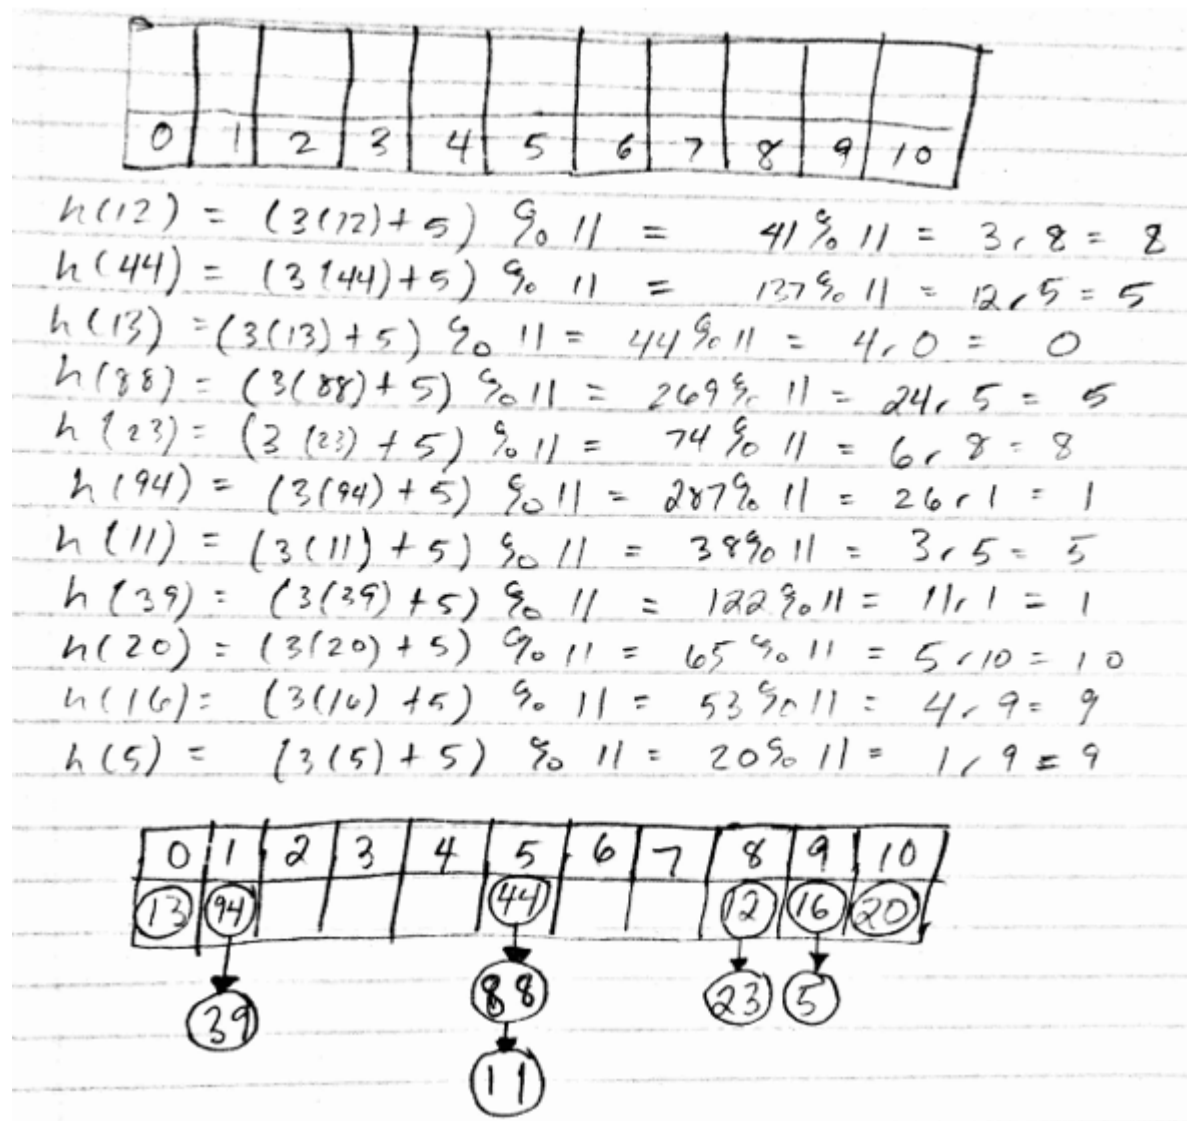 0 1 2 3 4 5 6 7 8 9 10
h(12) = (3(12)+5) % 11 = 41 % 11 = 3r8 = 8
h(44) = (3(44)+5) % 11 = 137 % 11 = 12r5 = 5
h(13) = (3(13)+5) % 11 = 44 % 11 = 4r0 = 0
h(88) = (3(88)+5) % 11 = 269 % 11 = 24r5 = 5
h(23) = (3(23)+5) % 11 = 74 % 11 = 6r8 = 8
h(94) = (3(94)+5) % 11 = 287 % 11 = 26r1 = 1
h(11) = (3(11)+5) % 11 = 38 % 11 = 3r5 = 5
h(39) = (3(39)+5) % 11 = 122 % 11 = 11r1 = 1
h(20) = (3(20)+5) % 11 = 65 % 11 = 5r10 = 10
h(16) = (3(16)+5) % 11 = 53 % 11 = 4r9 = 9
h(5) = (3(5)+5) % 11 = 20 % 11 = 1r9 = 9
0 1 2 3 4 5 6 7 8 9 10
13 94 44 12 16 20
39 88 23 5
11